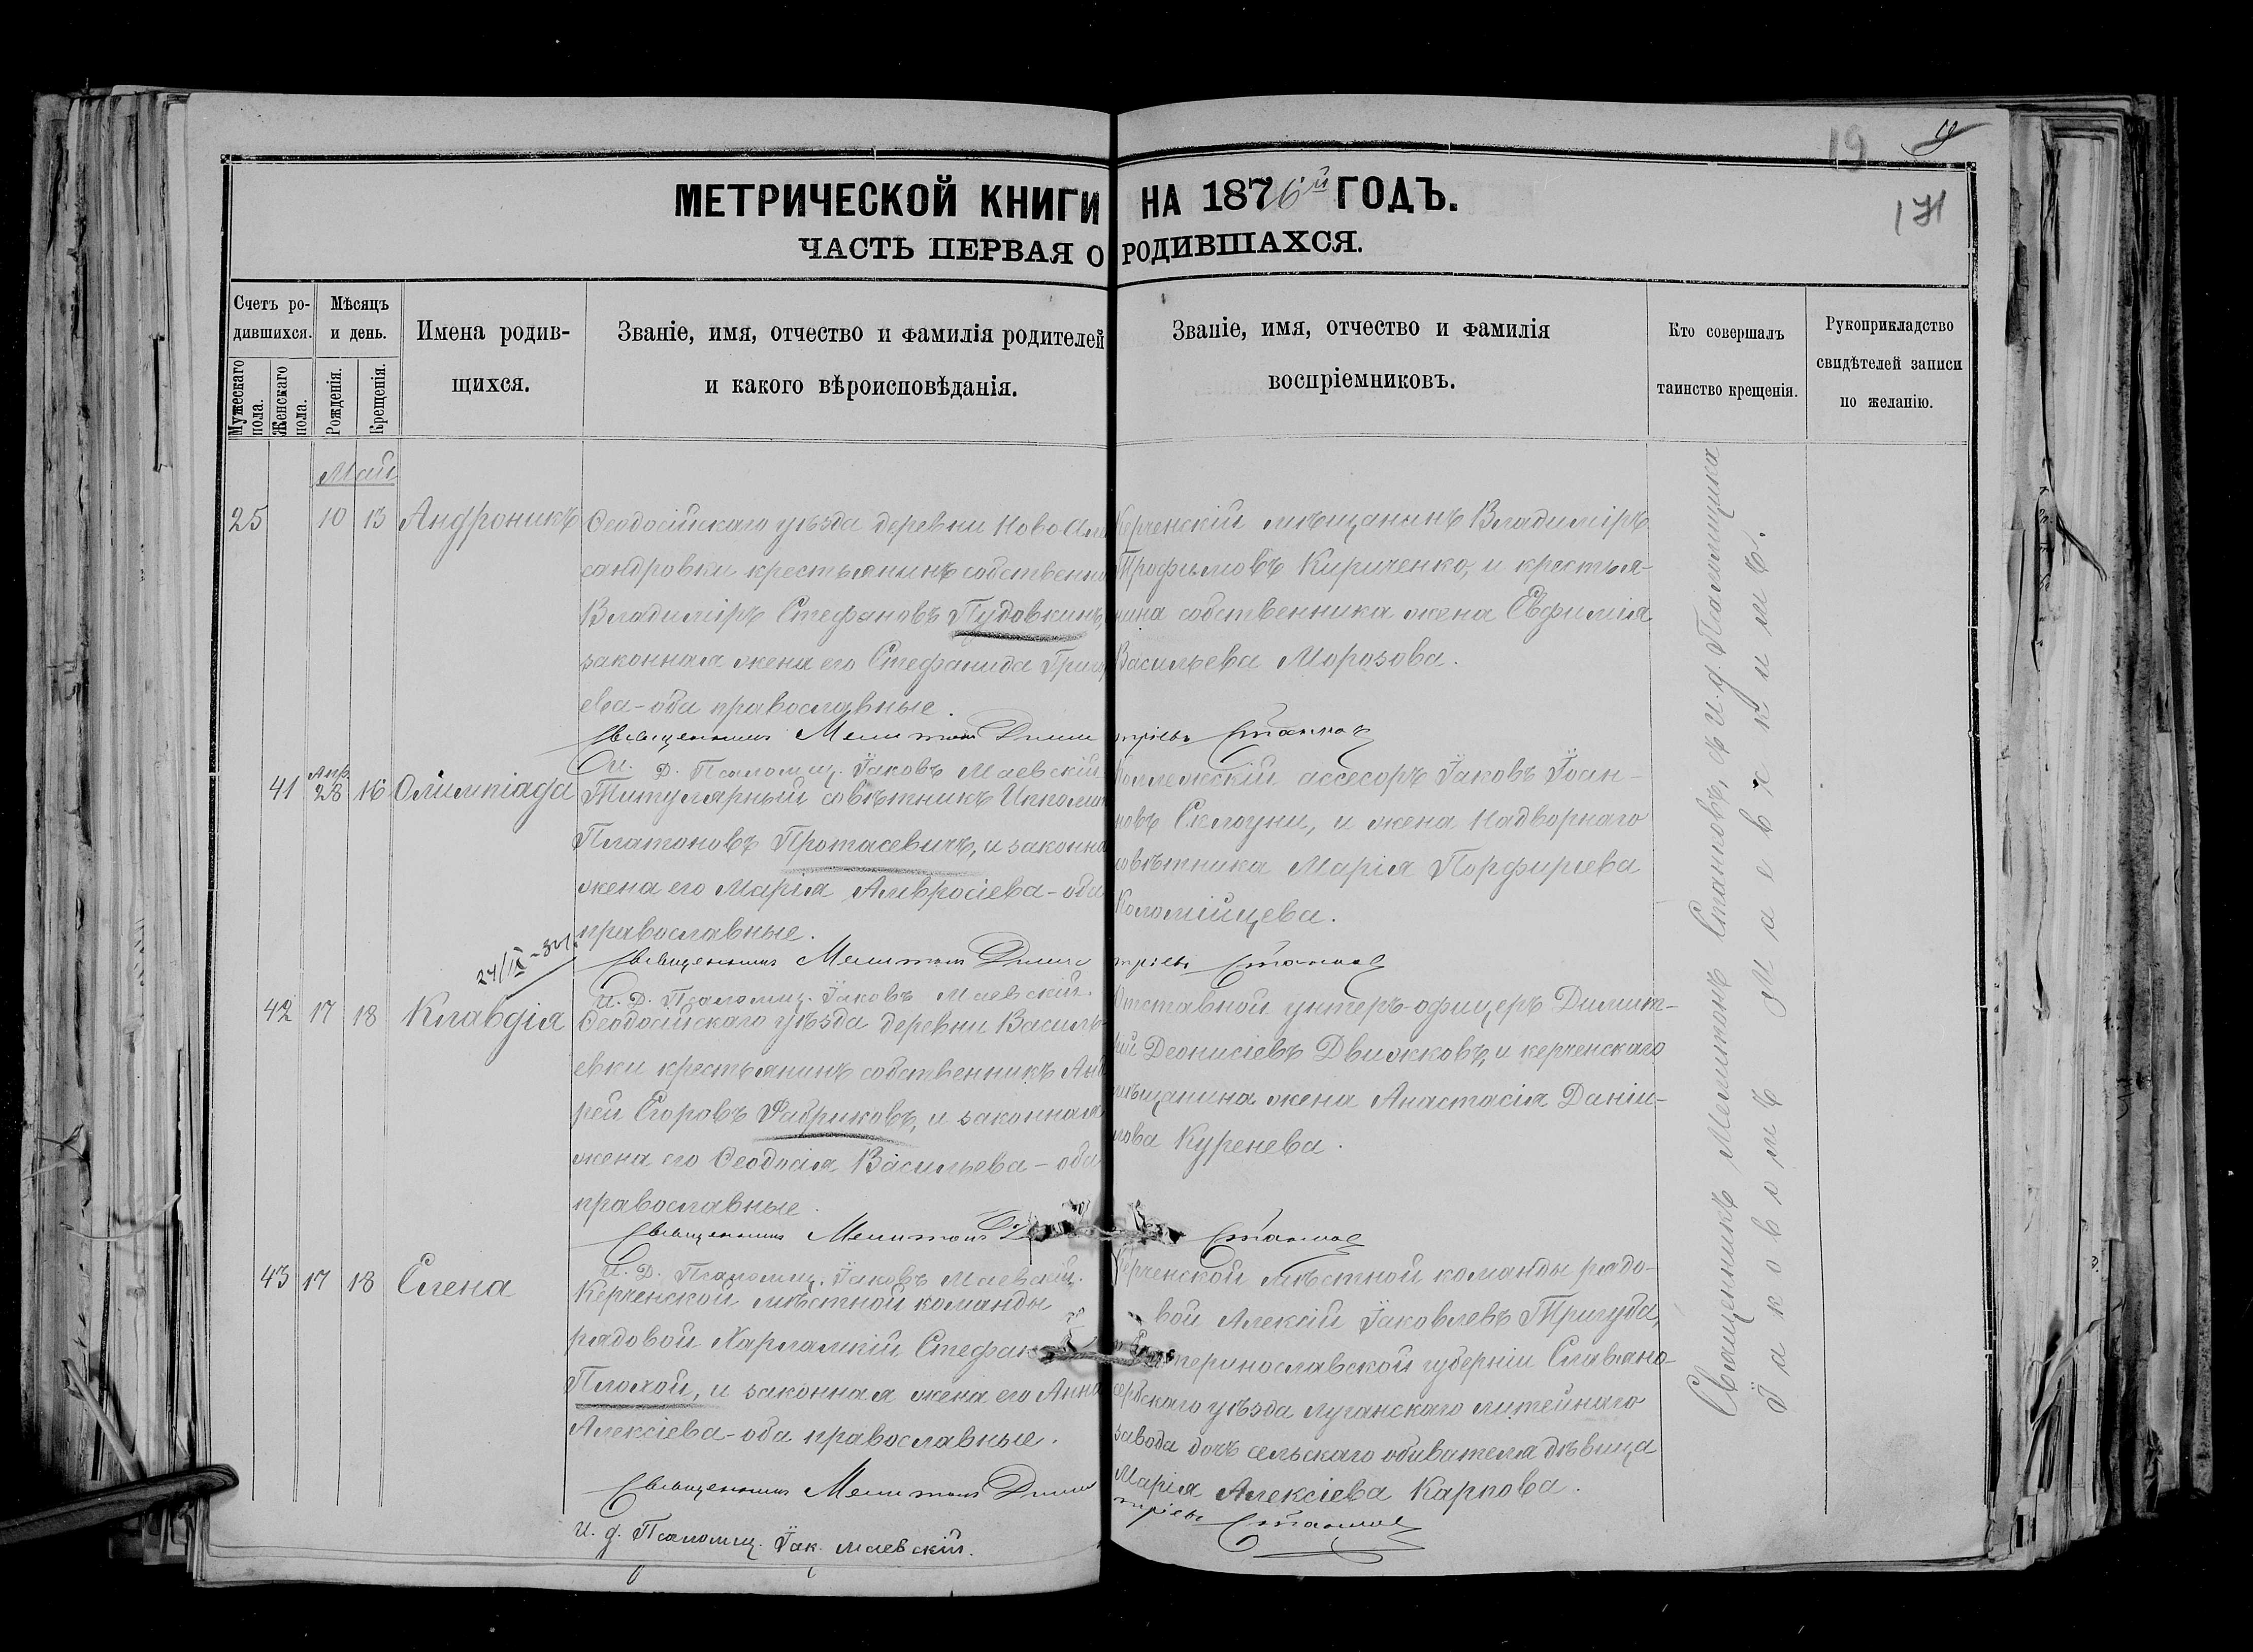 19
171
МЕТРИЧЕСКОЙ КНИГИ НА 1876й ГОДЪ.
ЧАСТЬ ПЕРВАЯ О РОДИВШАХСЯ.
Счетъ ро-
дившихся.
Мужескаго пола.
Женскаго пола.
Мѣсяцъ
и день.
Рожденія.
Крещенія.
Имена родив-
щихся.
Званіе, имя, отчество и фамилія родителей
и какого вѣроисповѣданія.
Званіе, имя, отчество и фамилія
воспріемниковъ.
Кто совершалъ
таинство крещенія.
Рукоприкладство
свидѣтелей записи
по желанію.
Май
25 10 13 Андроникъ
Ѳеодосійскаго уѣзда деревни Ново-Але
сандровки крестьянинъ собственни
Владиміръ Стефановъ Пудовкинъ,
законная жена его Стефанида Григор
ева - оба православные.
Керченскій мѣщанинъ Владиміръ
Трофимовъ Кириченко, и крестья-
нина собственника жена Евфимія
Васильева Морозова.
Священникъ Мелитонъ Димитріевъ Станковъ
И. Д. Псаломщ. Іаковъ Маевскій.
41 Апр. 28 16 Олимпіада
Титулярный совѣтникъ
Платоновъ Протасевичъ, и законна
жена его Марія Амвросіева - оба
православные.
Коллежскій ассесоръ Іаковъ Іоан-
новъ и жена Надворнаго
совѣтника Марія Порфирьева
Коломійцева.
Священникъ Мелитонъ Димитріевъ Станковъ
И. Д. Псаломщ. Іаковъ Маевскій.
42 17 18 Клавдія
Ѳеодосійскаго уѣзда деревни Василь-
евки крестьянинъ собственникъ Анд
рей Егоровъ Фабриковъ, и законная
жена его Ѳеодосія Васильева - оба
православные.
Отставной унтеръ-офицеръ Димит-
рій Деонисіевъ Движковъ, и керченскаго
мѣщанина жена Анастасія Даніи-
лова Куренева.
Священникъ Мелитонъ Станковъ
И. Д. Псаломщ. Іаковъ Маевскій.
43 17 18 Елена
Керченской мѣстной команды
рядовой Харлампій Стефан
Плохой, и законная жена его Анна
Алексіева - оба православные.
Керченской мѣстной команды рядо-
вой Алексій Іаковлевъ Тригуба,
Екатеринославской губерніи Славяно-
сербскаго уѣзда луганскаго литейнаго
завода дочь сельскаго обивателя дѣвица
Марія Алексіева Карпова.
Священникъ Мелитонъ Димитріевъ Станковъ
И. д. Псаломщ. Іак. Маевскій.
Священникъ Мелитонъ Станковъ, и И. д. Псаломщика
Іаковомъ Маевскимъ.